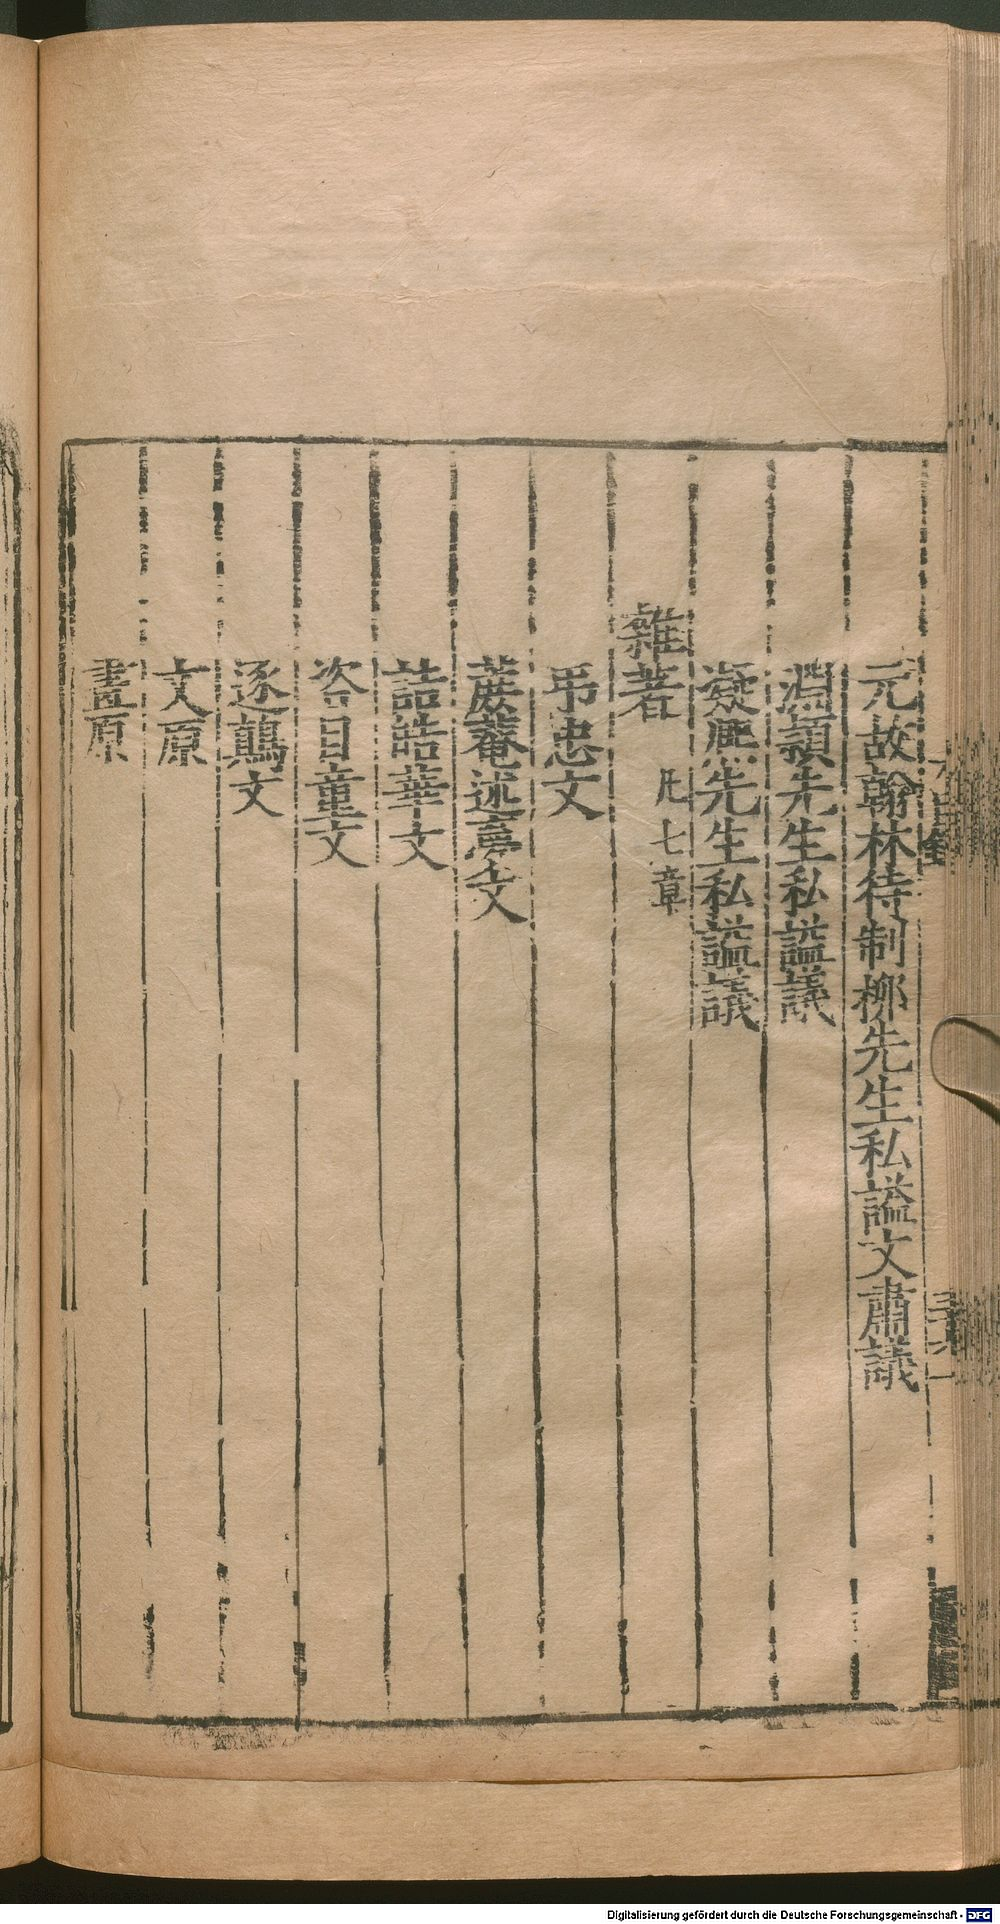 元故翰林待制柳先生私謚文肅議
淵穎先生私謚議
凝熈先生私謚議
雜著 凡七章
弔忠文
蔗菴述夢文
詰皓華文
咨目童文
逐鷏文
文原
畫原
Digitalisierung gefördert durch die Deutsche Forschungsgemeinschaft - DFG